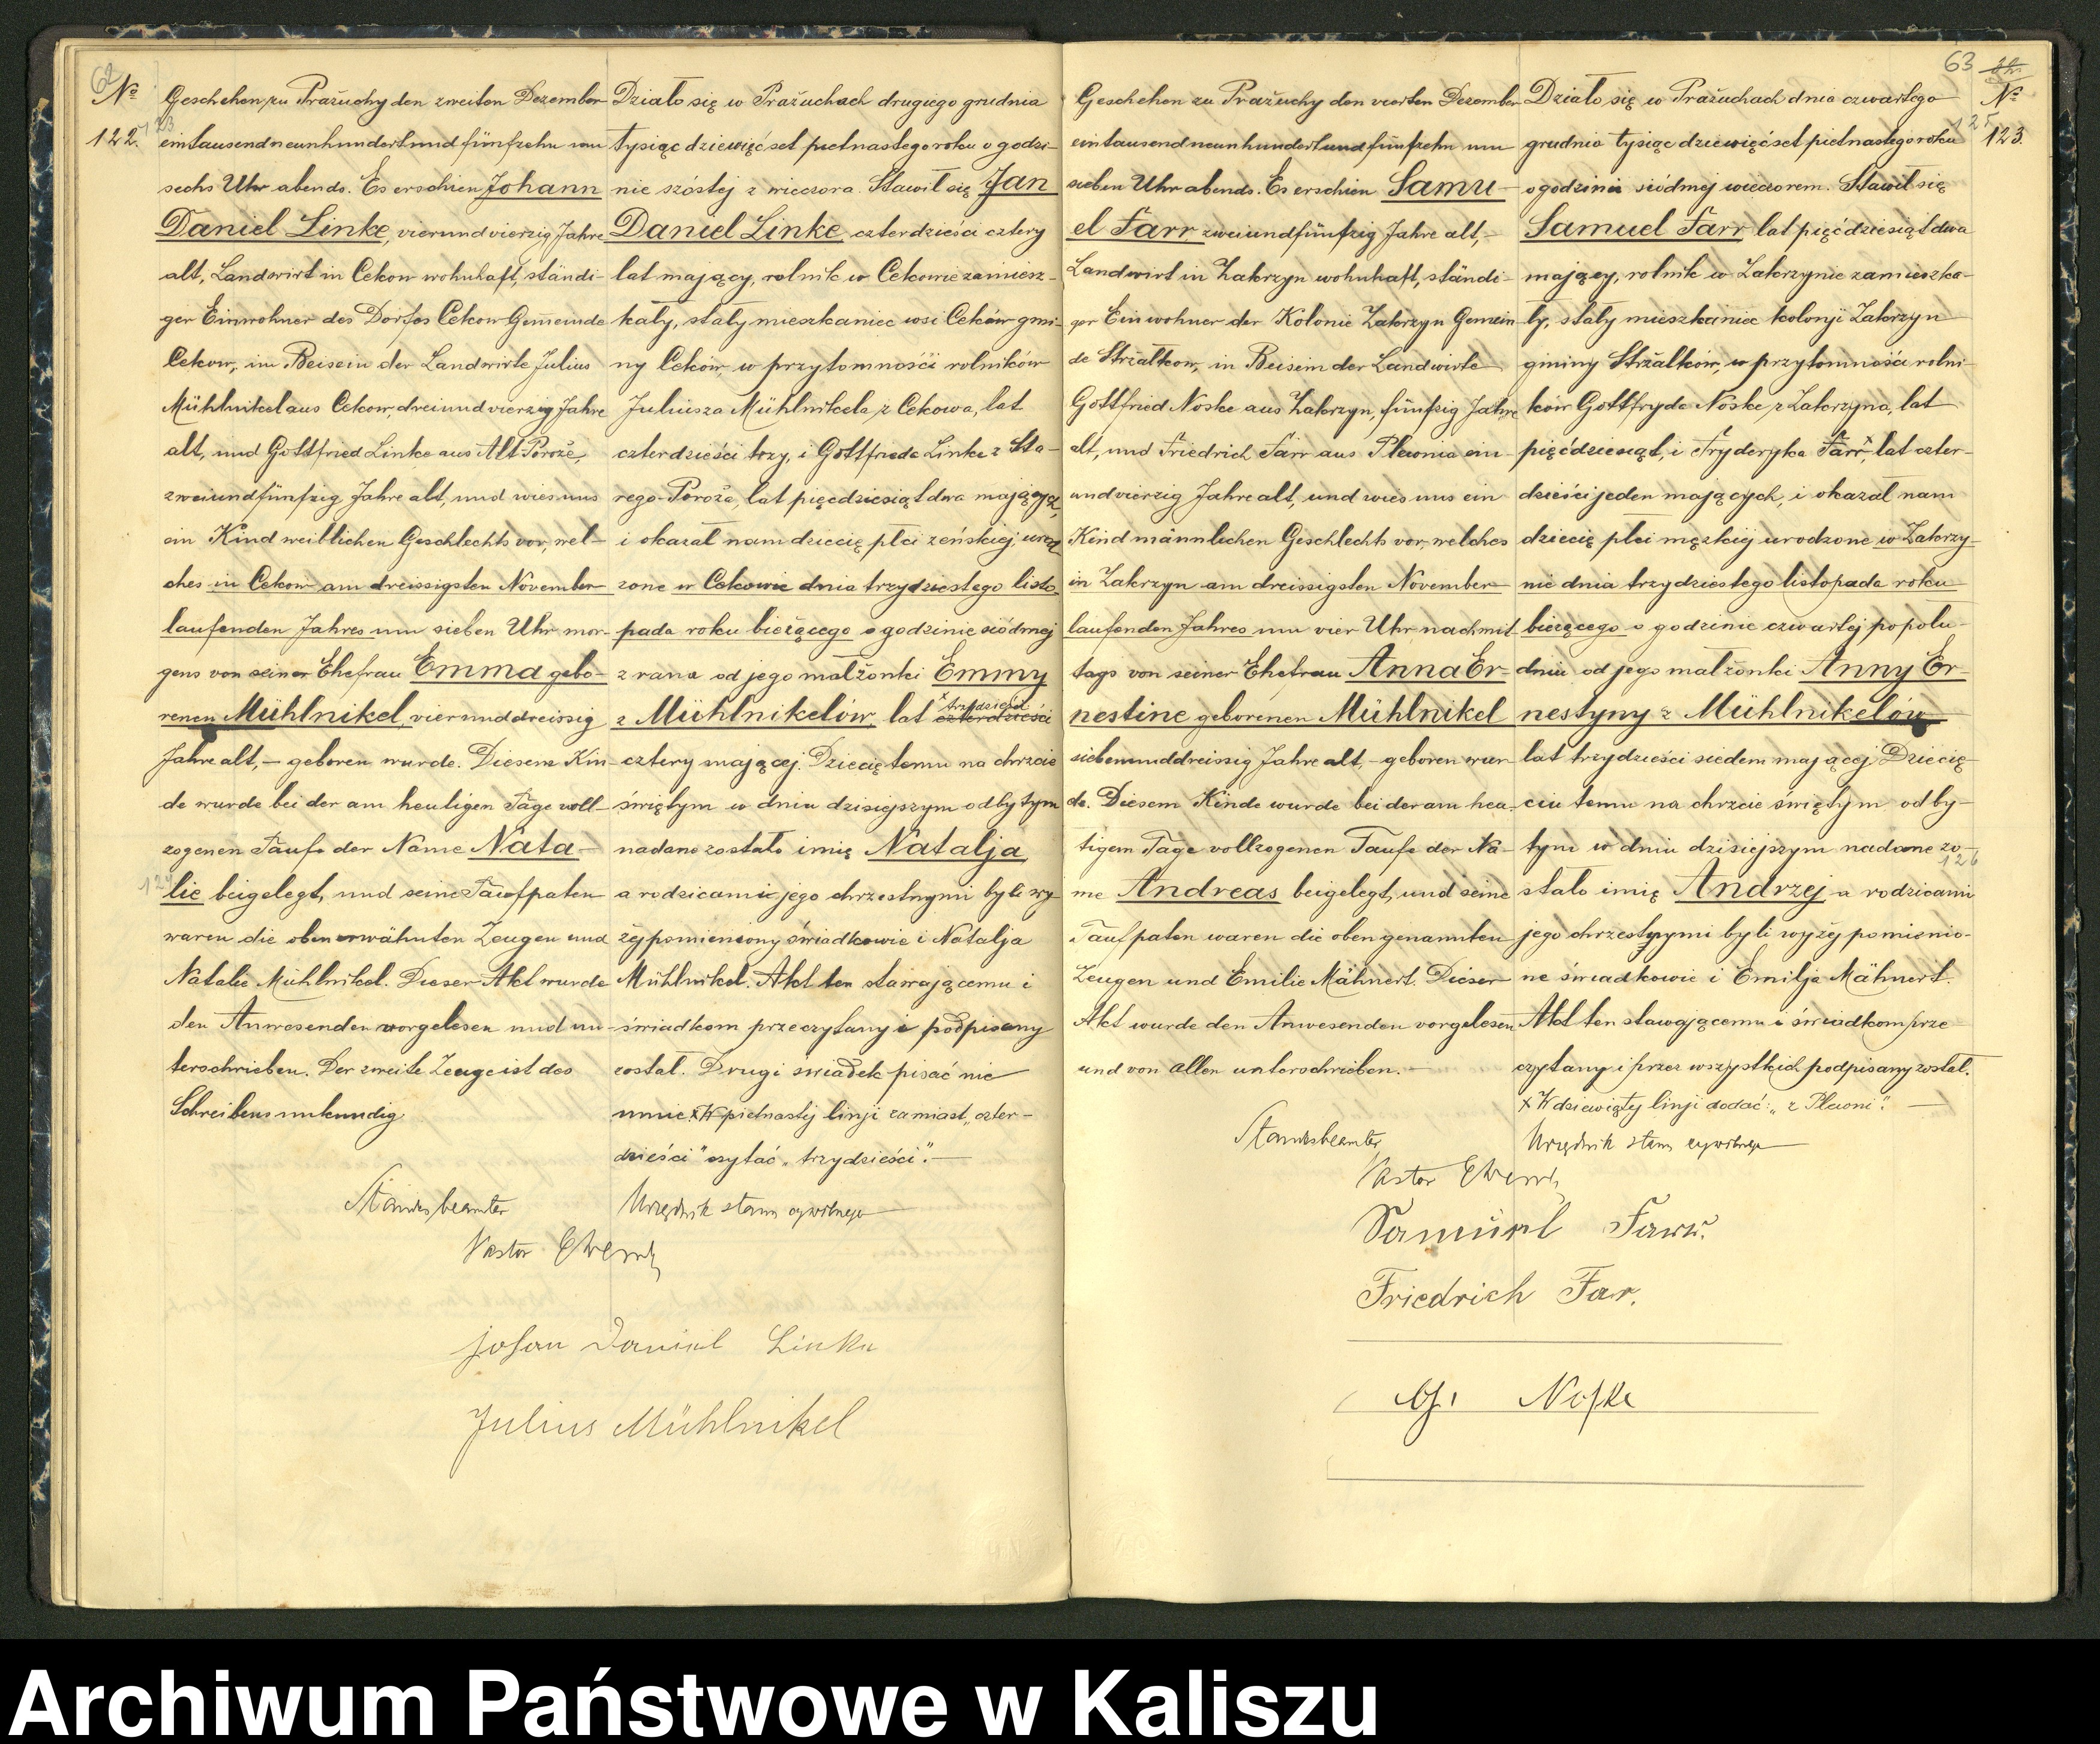 62
№
122.
123
Geschehen zu Prażuchy den zweiten Dezember
eintausendneunhundertundfünfzehn um
sechs Uhr abends. Es erschien Johann
Daniel Linke, vierundvierzig Jahre
alt, Landwirt in Cekow wohnhaft, ständi-
ger Einwohner des Dorfes Cekow Gemeinde
Cekow, im Beisein der Landwirte Julius
Mühlnikel aus Cekow, dreiundvierzig Jahre
alt, und Gottfried Linke aus Alt-Poroże,
zweiundfünfzig Jahre alt, und wies uns
ein Kind weiblichen Geschlechts vor, wel-
ches in Cekow am dreissigsten November
laufenden Jahres um sieben Uhr mor-
gens von seiner Ehefrau Emma gebo-
renen Mühlnikel, vierunddreissig
Jahre alt, — geboren wurde. Diesem Kin-
de wurde bei der am heutigen Tage voll-
zogenen Taufe der Name Nata-
124
lie beigelegt, und seine Taufpaten
waren die oben erwähnten Zeugen und
Natalie Mühlnikel. Dieser Akt wurde
den Anwesenden vorgelesen und un-
terschrieben. Der zweite Zeuge ist des
Schreibens unkundig
Działo się w Prażuchach drugiego grudnia
tysiąc dziewięćset piętnastego roku o godzi-
nie szóstej z wieczora. Stawił się Jan
Daniel Linke, czterdzieści cztery
lat mający, rolnik w Cekowie zamiesz-
kały, stały mieszkaniec wsi Ceków gmi-
ny Ceków, w przytomności rolników
Juliusza Mühlnikela z Cekowa, lat
czterdzieści trzy, i Gottfrieda Linke z Sta-
rego-Poroża, lat pięćdziesiąt dwa mających,
i okazał nam dziecię płci żeńskiej, urod
zone w Cekowie dnia trzydziestego listo-
pada roku bieżącego o godzinie siódmej
z rana od jego małżonki Emmy
x trzydzieści
z Mühlnikelów, lat czterdzieści
cztery mającej. Dziecięciu temu na chrzcie
świętym w dniu dzisiejszym odbytym
nadane zostało imię Natalja,
a rodzicami jego chrzestnymi byli wy-
żej pomienieony świadkowie i Natalja
Mühlnikel. Akt ten stawającemu i
świadkom przeczytany i podpisany
został. Drugi świadek pisać nie
umie. x W piętnastej linji zamiast „czter-
dzieści" czytać „trzydzieści". —
Standesbeamter
Urzędnik stanu cywilnego
Pastor
Johan Daniel Linke
Julius Mühlnikel
63
№
123.
125
Geschehen zu Prażuchy den vierten Dezember
eintausendneunhundertundfünfzehn um
sieben Uhr abends. Es erschien Samu-
el Farr, zweiundfünfzig Jahre alt, —
Landwirt in Zakrzyn wohnhaft, ständi-
ger Einwohner der Kolonie Zakrzyn Gemein
de Strzałkow, in Beisein der Landwirte
Gottfried Noske aus Zakrzyn, fünfzig Jahre
alt, und Friedrich Farr aus Plewnia ein-
undvierzig Jahre alt, und wies uns ein
Kind männlichen Geschlechts vor, welches
in Zakrzyn am dreissigsten November
laufenden Jahres um vier Uhr nachmit
tags von seiner Ehefrau Anna Er-
nestine geborenen Mühlnikel
siebenunddreissig Jahre alt, — geboren wur-
de. Diesem Kinde wurde bei der am heu-
tigem Tage vollzogenen Taufe der Na-
me Andreas beigelegt, und seine
Taufpaten waren die oben genannten
Zeugen und Emilie Mähnert. Dieser
Akt wurde den Anwesenden vorgelesen
und von allen unterschrieben. —
Działo się w Prażuchach dnia czwartego
grudnia tysiąc dziewięćset piętnastego roku
o godzinie siódmej wieczorem. Stawił się
Samuel Farr, lat pięćdziesiąt dwa
mający, rolnik w Zakrzynie zamieszka-
ły, stały mieszkaniec kolonji Zakrzyn
gminy Strzałków, w przytomności rolni-
ków Gottfryda Noske z Zakrzyna, lat
pięćdziesiąt, i Fryderyka Farr,x lat czter-
dzieści jeden mających, i okazał nam
dziecię płci męzkiej urodzone w Zakrzy-
nie dnia trzydziestego listopada roku
bieżącego o godzinie czwartej popołu-
dniu od jego małżonki Anny Er-
nestyny z Mühlnikelów
lat trzydzieści siedem mającej. Dziecię-
ciu temu na chrzcie świętym odby-
tym w dniu dzisiejszym nadane zo-
126
stało imię Andrzej a rodzicami
jego chrzestnymi byli wyżej pomienio-
ne świadkowie i Emilja Mähnert.
Akt ten stawającemu i świadkom prze
czytany i przez wszystkich podpisany został.
x W dziewiątej linji dodać: „z Plewni". —
Standesbeamter
Urzędnik stanu cywilnego
Pastor
Samuel Farr.
Friedrich Far.
G. Noske
Archiwum Państwowe w Kaliszu